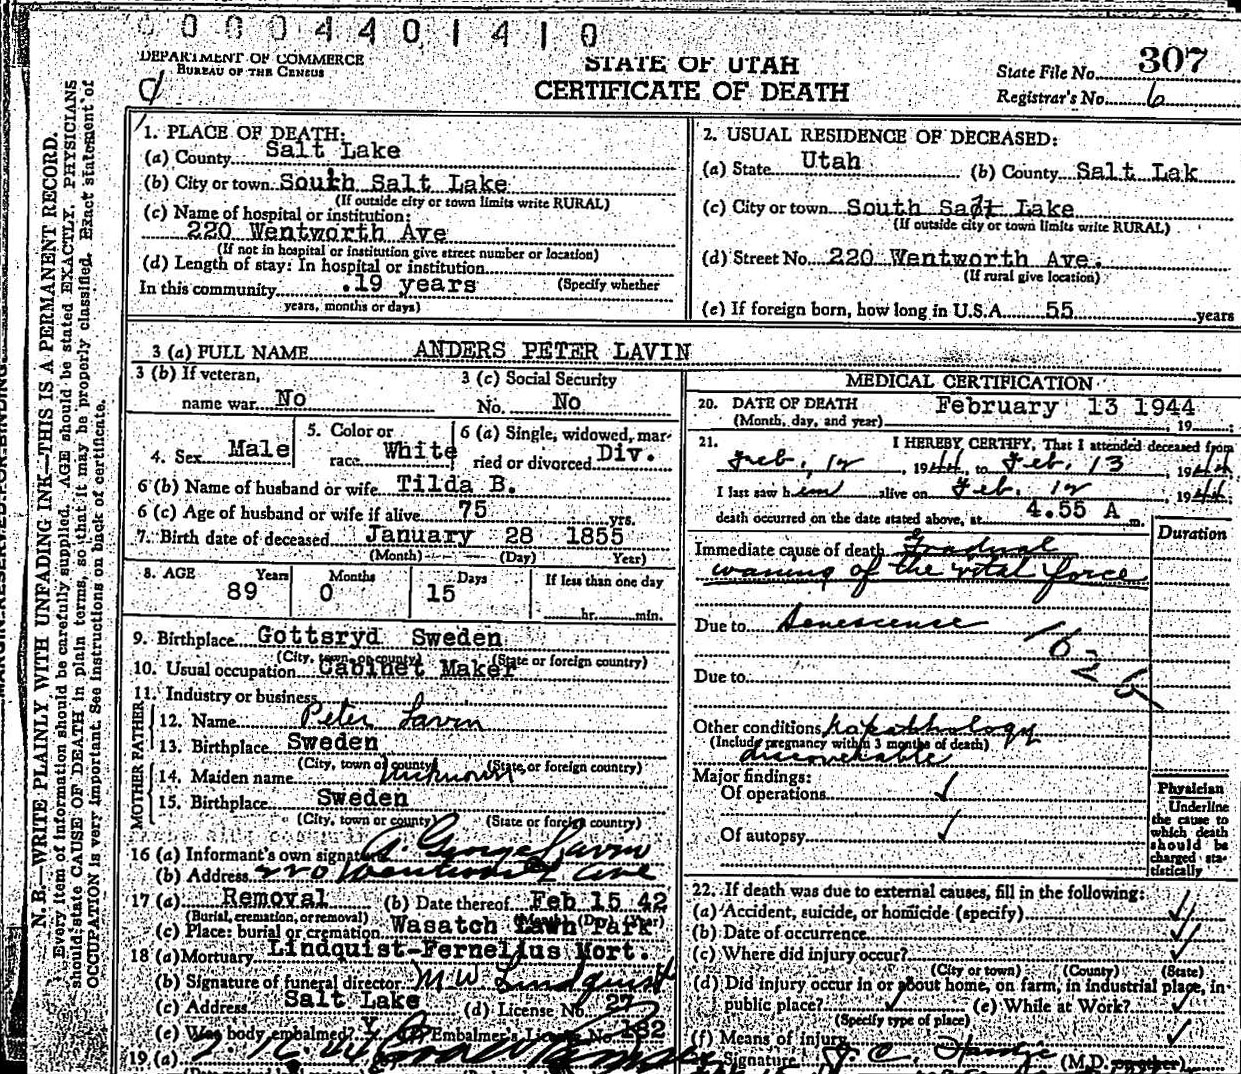 0 0 0 4 4 0 1 4 1 0
DEPARTMENT OF COMMERCE
BUREAU OF THE CENSUS
STATE OF UTAH
CERTIFICATE OF DEATH
State File No. 307
Registrar's No. 6
N. B.—WRITE PLAINLY WITH UNFADING INK—THIS IS A PERMANENT RECORD.
Every item of information should be carefully supplied. AGE should be stated EXACTLY. PHYSICIANS
should state CAUSE OF DEATH in plain terms, so that it may be properly classified. Exact statement of
OCCUPATION is very important. See instructions on back of certificate.
1. PLACE OF DEATH:
(a) County Salt Lake
(b) City or town South Salt Lake
(If outside city or town limits write RURAL)
(c) Name of hospital or institution:
220 Wentworth Ave
(If not in hospital or institution give street number or location)
(d) Length of stay: In hospital or institution
In this community .19 years (Specify whether
years, months or days)
2. USUAL RESIDENCE OF DECEASED:
(a) State Utah (b) County Salt Lak
(c) City or town South Salt Lake
(If outside city or town limits write RURAL)
(d) Street No. 220 Wentworth Ave.
(If rural give location)
(e) If foreign born, how long in U.S.A. 55 years
3 (a) FULL NAME ANDERS PETER LAVIN
3 (b) If veteran,
name war No
3 (c) Social Security
No. No
4. Sex Male
5. Color or
race White
6 (a) Single, widowed, mar-
ried or divorced Div.
6 (b) Name of husband or wife Tilda B.
6 (c) Age of husband or wife if alive 75 yrs.
7. Birth date of deceased January 28 1855
(Month) (Day) Year)
8. AGE Years Months Days If less than one day
89 0 15 hr. min.
9. Birthplace Gottsryd Sweden
(City, town or county) (State or foreign country)
10. Usual occupation Cabinet Maker
11. Industry or business
FATHER
12. Name Peter Lavin
13. Birthplace Sweden
(City, town or county) (State or foreign country)
MOTHER
14. Maiden name Unknown
15. Birthplace Sweden
(City, town or county) (State or foreign country)
16 (a) Informant's own signature A George Lavin
(b) Address 220 Wentworth Ave
17 (a) Removal (b) Date thereof Feb 15 42
(Burial, cremation, or removal) (Month) (Day) (Year)
(c) Place: burial or cremation Wasatch Lawn Park
18 (a) Mortuary Lindquist-Fernelius Mort.
(b) Signature of funeral director M W Lindquist
(c) Address Salt Lake (d) License No. 27
(e) Was body embalmed? Y Embalmer's License No. 182
19 (a)
MEDICAL CERTIFICATION
20. DATE OF DEATH February 13 1944
(Month, day, and year) , 19
21. I HEREBY CERTIFY, That I attended deceased from
Feb. 12, 1944, to Feb. 13, 1944
I last saw him alive on Feb. 12, 1944
death occurred on the date stated above, at 4.55 A m.
Duration
Immediate cause of death Gradual
waning of the vital force
Due to Senescense
Due to
Other conditions No pathology
(Include pregnancy within 3 months of death)
discoverable
Major findings:
Of operations
Of autopsy
Physician
Underline
the cause to
which death
should be
charged sta-
tistically
22. If death was due to external causes, fill in the following:
(a) Accident, suicide, or homicide (specify)
(b) Date of occurrence
(c) Where did injury occur?
(City or town) (County) (State)
(d) Did injury occur in or about home, on farm, in industrial place, in
public place? (e) While at Work?
(Specify type of place)
(f) Means of injury
Signature (M.D. or other)